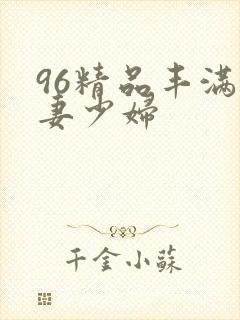 96精品丰满
妻少婦
千金小蘇